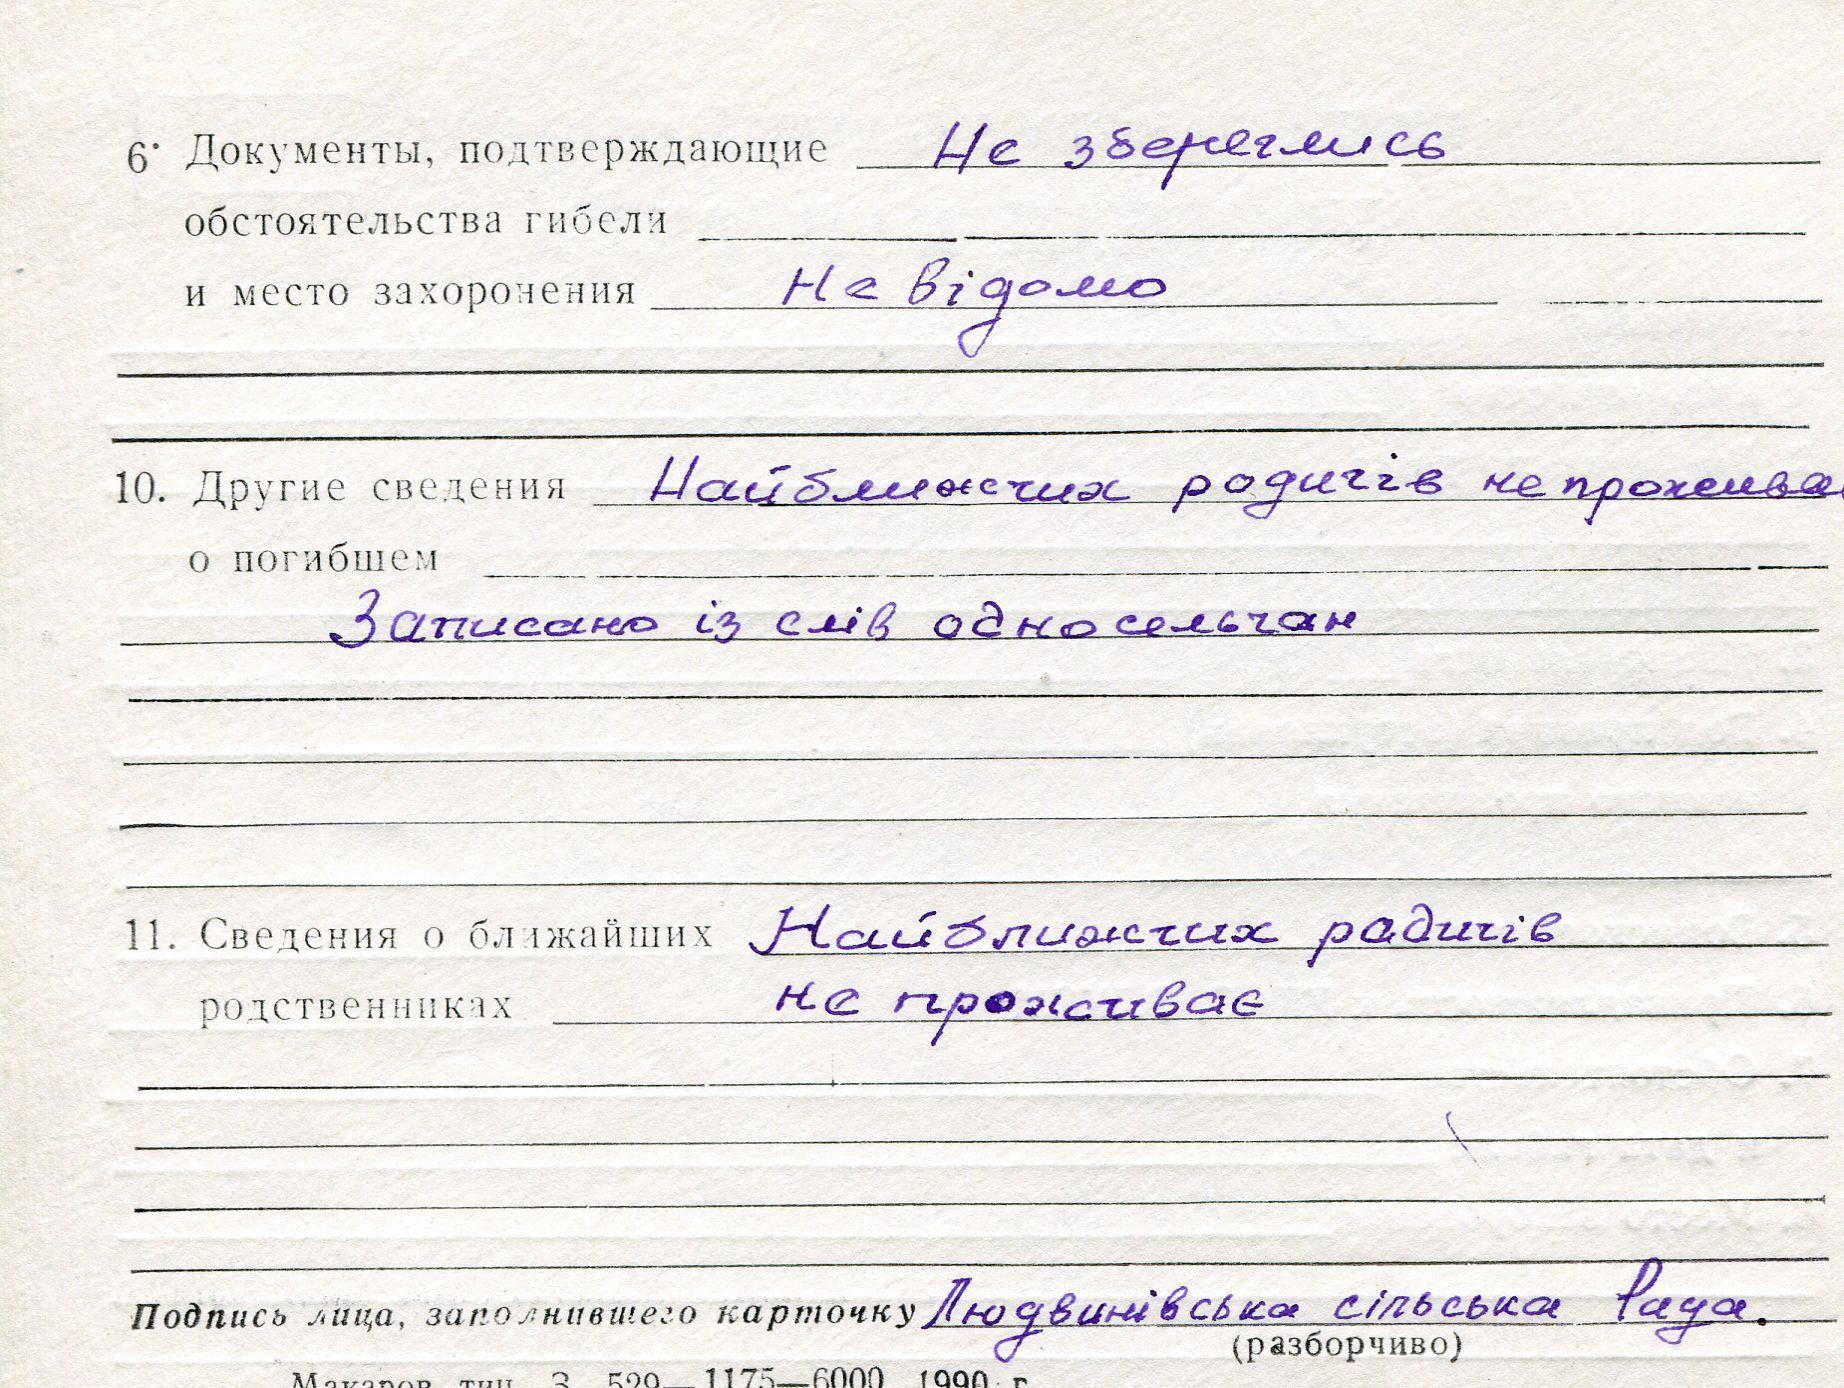 6. Документы, подтверждающие Не збереглись
обстоятельства гибели
и место захоронения Не відомо
10. Другие сведения Найближчих родичів не прожива
о погибшем
Записано із слів односельчан
11. Сведения о ближайших Найближчих родичів
родственниках не проживає
Подпись лица, заполнившего карточку Людвинівська сільська Рада.
(разборчиво)
Макаров, тип. З. 529—1175—6000 1990 г.